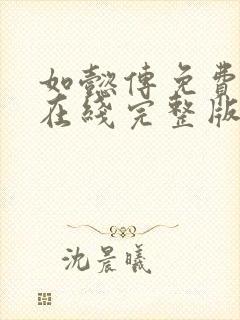 如懿傳免費
在綫完整版
沈晨曦